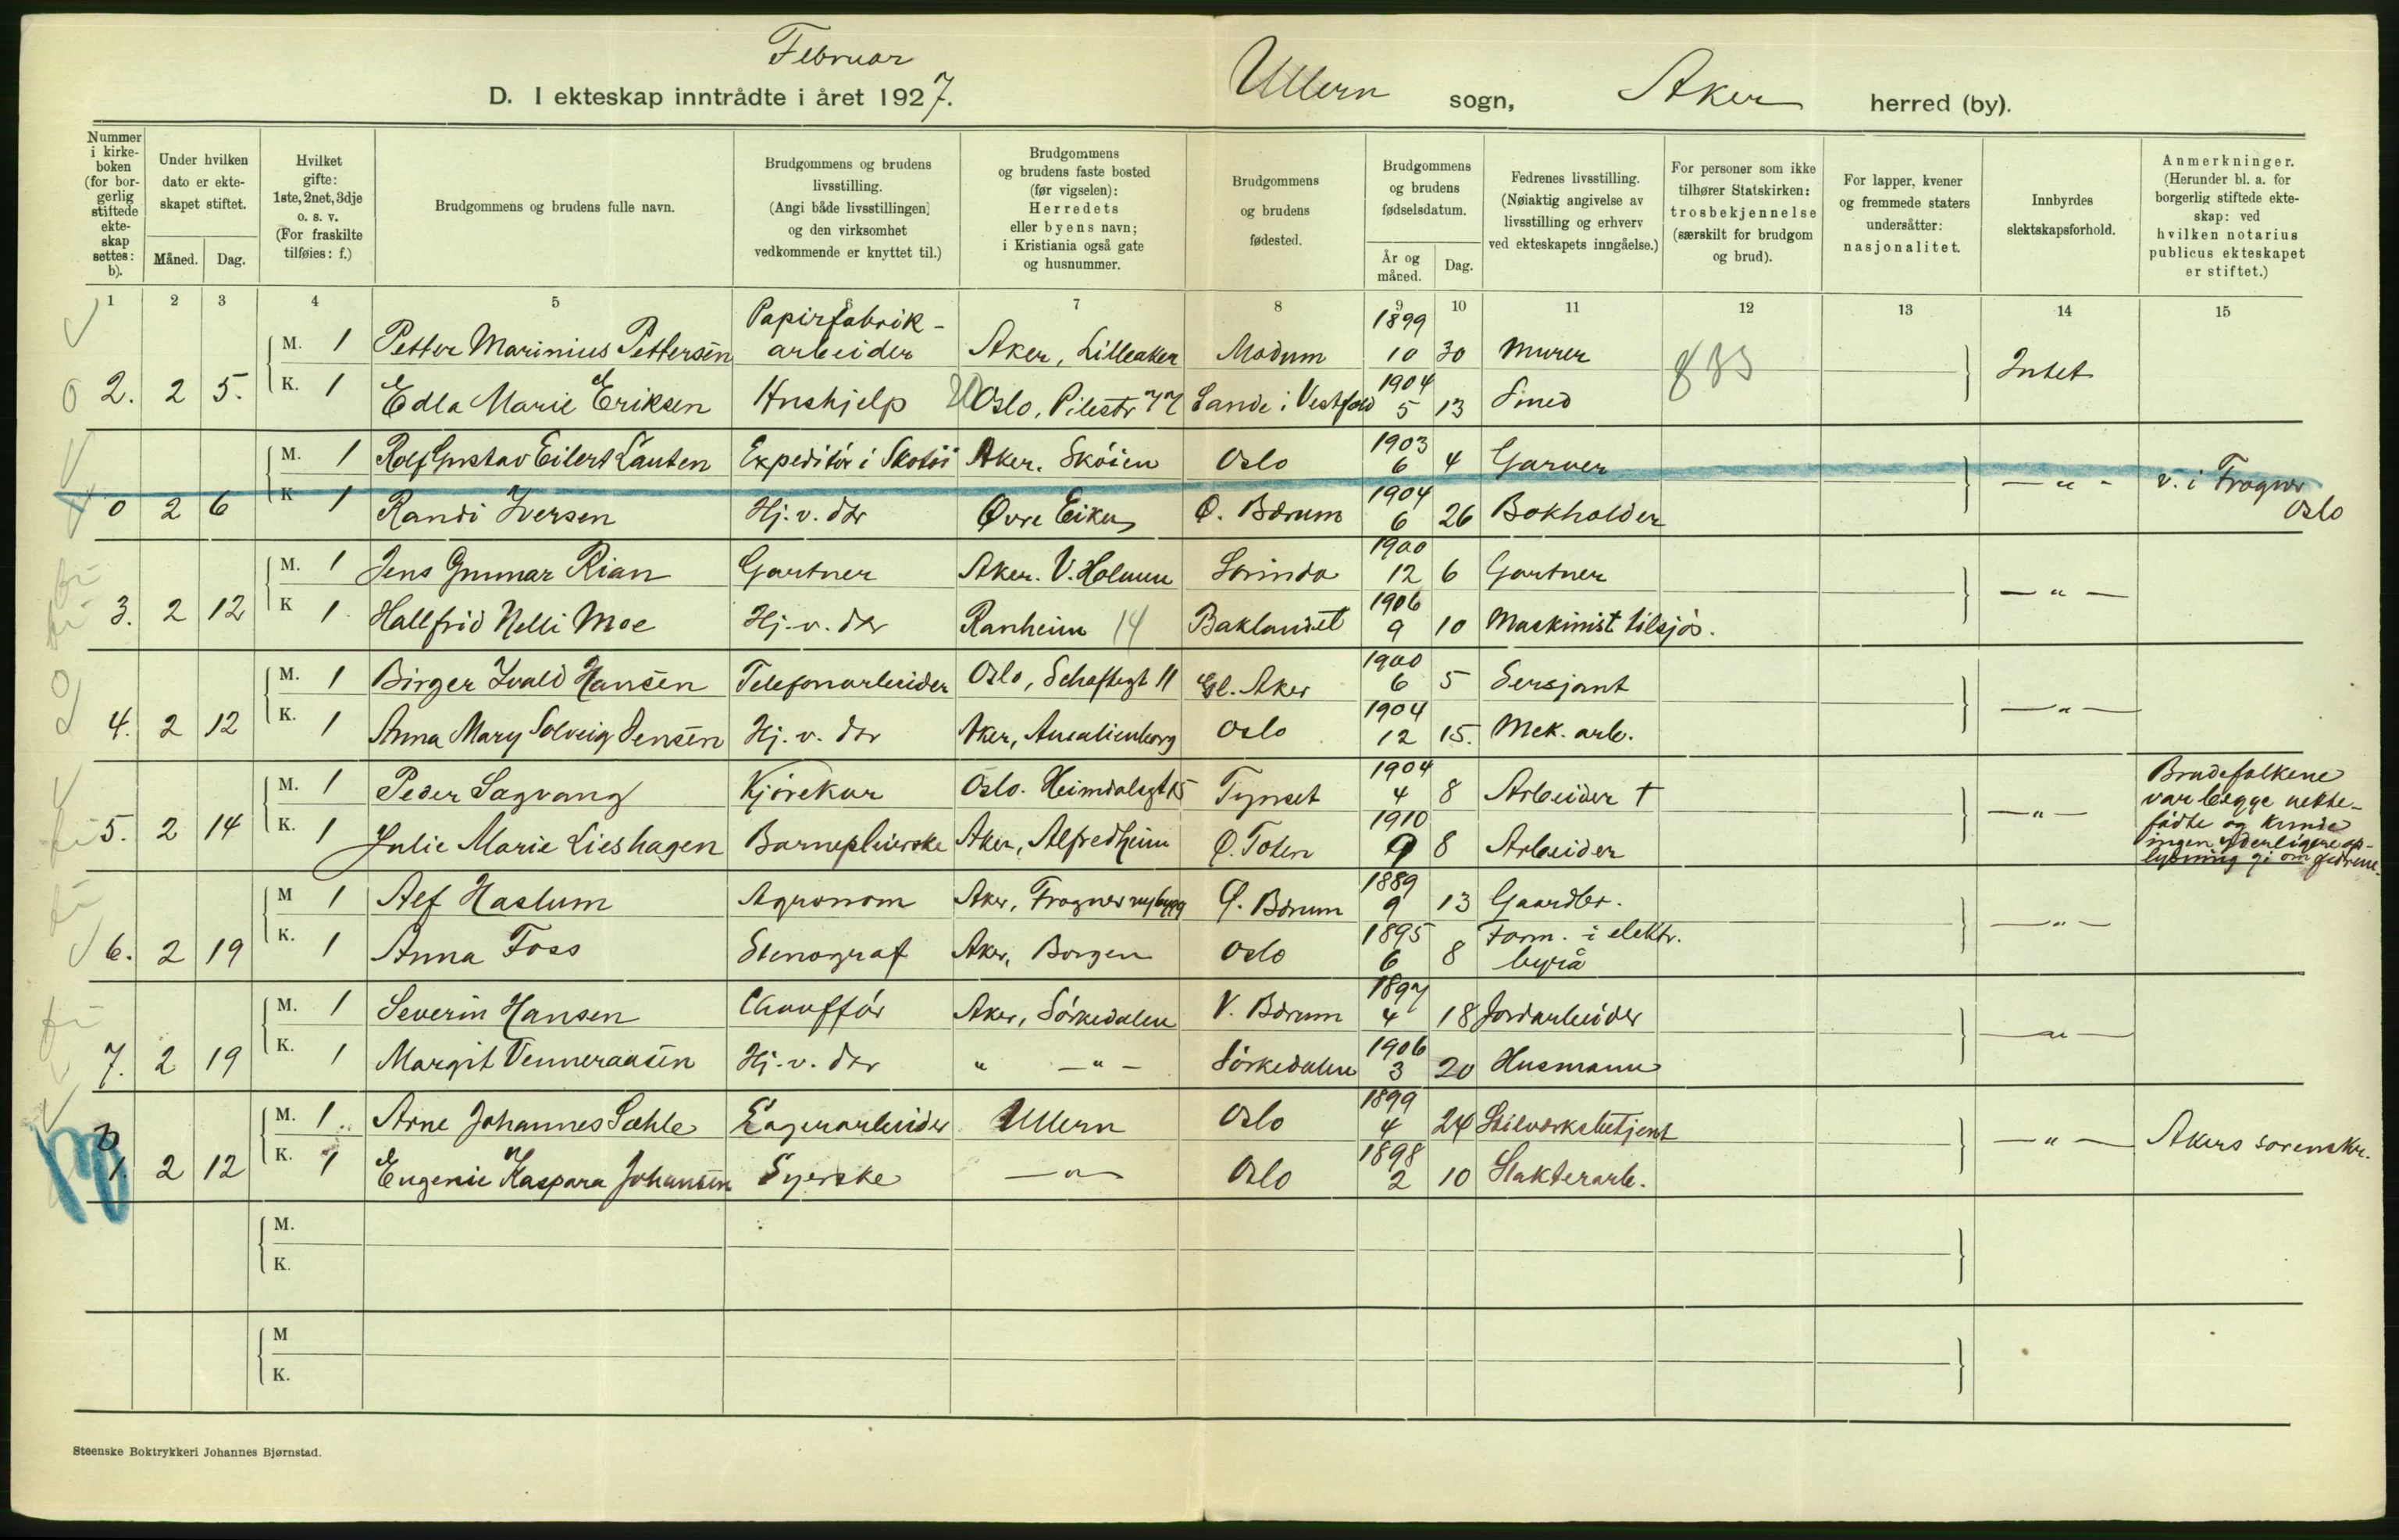 Februar
D. I ekteskap inntrådte i året 1927. Ullern sogn, Aker herred (by).
Nummer i kirkeboken (for borgerlig stiftede ekteskap settes: b).
Under hvilken dato er ekteskapet stiftet.
Måned. Dag.
Hvilket gifte: 1ste, 2net, 3dje o. s. v. (For fraskilte tilføies: f.)
Brudgommens og brudens fulle navn.
Brudgommens og brudens livsstilling. (Angi både livsstillingen og den virksomhet vedkommende er knyttet til.)
Brudgommens og brudens faste bosted (før vigselen): Herredets eller byens navn; i Kristiania også gate og husnummer.
Brudgommens og brudens fødested.
Brudgommens og brudens fødselsdatum.
År og måned. Dag.
Fedrenes livsstilling. (Nøiaktig angivelse av livsstilling og erhverv ved ekteskapets inngåelse.)
For personer som ikke tilhører Statskirken: trosbekjennelse (særskilt for brudgom og brud).
For lapper, kvener og fremmede staters undersåtter: nasjonalitet.
Innbyrdes slektskapsforhold.
Anmerkninger. (Herunder bl. a. for borgerlig stiftede ekteskap: ved hvilken notarius publicus ekteskapet er stiftet.)
1 2 3 4 5 6 7 8 9 10 11 12 13 14 15
M. 1 Petter Marinius Pettersen Papirfabrikarbeider Aker, Lilleaker Modum 1899 10 30 Murer
2. 2 5. K. 1 Edla Marie Eriksen Hushjelp Oslo, Pilestr 77 Sande i Vestfold 1904 5 13 Smed Intet
M. 1 Rolf Gustav Eilert Lauten Expeditör i Skotöi Aker. Sköien Oslo 1903 6 4 Garver
0 2 6 K 1 Randi Iversen Hj. v. dær Øvre Eiker Ø. Bærum 1904 6 26 Bokholder — " — v. i Frogner Oslo
M. 1 Jens Gunnar Rian Gartner Aker. V. Holmen Sorinda 1900 12 6 Gartner
3. 2 12 K 1 Hallfrid Nelli Moe Hj. v. dær Ranheim 14 Baklandet 1906 9 10 Maskinist tilsjös. — " —
M. 1 Birger Ivald Hansen Telefonarbeider Oslo, Schaftegt 11 Gl. Aker 1900 6 5 Sersjant
4. 2 12 K. 1 Anna Mary Solveig Jensen Hj. v. dær Aker, Amalienborg Oslo 1904 12 15. Mek. arb. — " —
M. 1 Peder Sagvang Kjörekar Oslo. Heimdalsgt 15 Tynset 1904 4 8 Arbeider †
5. 2 14 K. 1 Julie Marie Lieshagen Barnepleierske Aker, Alfredheim Ø. Toten 1910 9 8 Arbeider — " — Brudefolkene var begge uektefödte og kunde ingen yderligere oplysning gi om fedrene.
M 1 Alf Haslum Agronom Aker, Frogner nybygg Ø. Bærum 1889 9 13 Gaardbr.
6. 2 19 K. 1 Anna Foss Stenograf Aker, Borgen Oslo 1895 6 8 Form. i elektr. byrå — " —
M. 1 Severin Hansen Chaufför Aker, Sörkedalen V. Bærum 1897 4 18 Jordarbeider
7. 2 19 K. 1 Margit Venneraasen Hj. v. dær " — " — Sörkedalen 1906 3 20 Husmann — " —
M. 1 Arne Johannes Sæhle Lagerarbeider Ullern Oslo 1899 4 24 Seilværksbetjent
b 1. 2 12 K. 1 Eugenie Kaspara Johansen Syerske — " — Oslo 1898 2 10 Slakterarb. — " — Akers sorenskr.
M.
K.
M
K.
Steenske Boktrykkeri Johannes Bjørnstad.